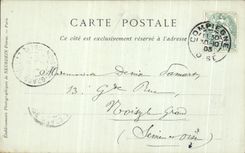 CARTE POSTALE
Ce côté est exclusivement réservé à l'adresse
COMPIEGNE
Mademoiselle Denise
13, Gde Rue,
Noisy le Grand
(Seine et Oise)
Etablissements Photographiques de NEURDEIN Frères. — Paris